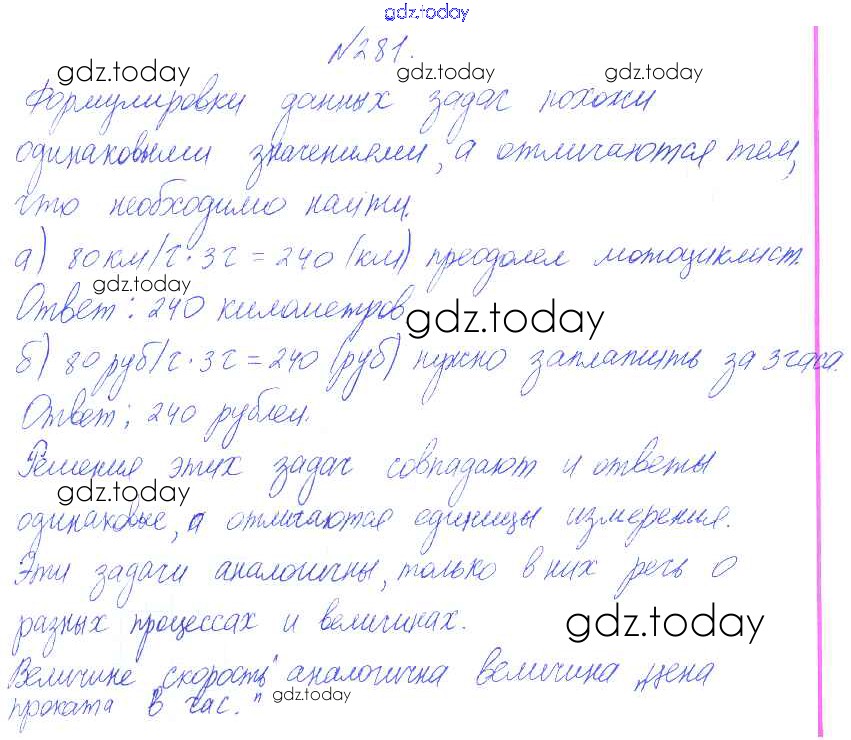 gdz.today
№281.
gdz.today gdz.today gdz.today
Формулировки данных задач похожи
одинаковыми значениями, а отличаются тем,
что необходимо найти.
а) 80 км/ч · 3 ч = 240 (км) преодолел мотоциклист.
gdz.today
Ответ: 240 километров
gdz.today
б) 80 руб/ч · 3 ч = 240 (руб) нужно заплатить за 3 часа.
Ответ: 240 рублей.
Решения этих задач совпадают и ответы
gdz.today
одинаковые, а отличаются единицы измерения.
Эти задачи аналогичны, только в них речь о
разных процессах и величинах.
gdz.today
Величине „скорость" аналогична величина „цена
проката в час."
gdz.today